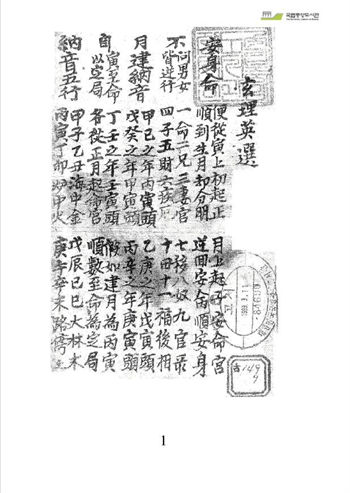 국립중앙도서관
玄理英選
安身命
便從寅上初起正 月上起子安命宮
順到生月却分明 逆回安命順安身
不問男女皆逆行
一命二兄三妻宮 七 八奴九官
四子五財六疾厄 十田十一福 相
月建納音
甲己之年丙寅頭 乙庚之年戊寅頭
戊癸之年甲寅頭 丙辛之年庚寅頭
丁壬之年壬寅頭 假如建月為丙寅
自寅至命以定局
各從正月起命宮 順數至命為定局
納音五行
甲子乙丑海中金 戊辰己巳大林木
丙寅丁卯炉中火 庚午辛未路傍土
1